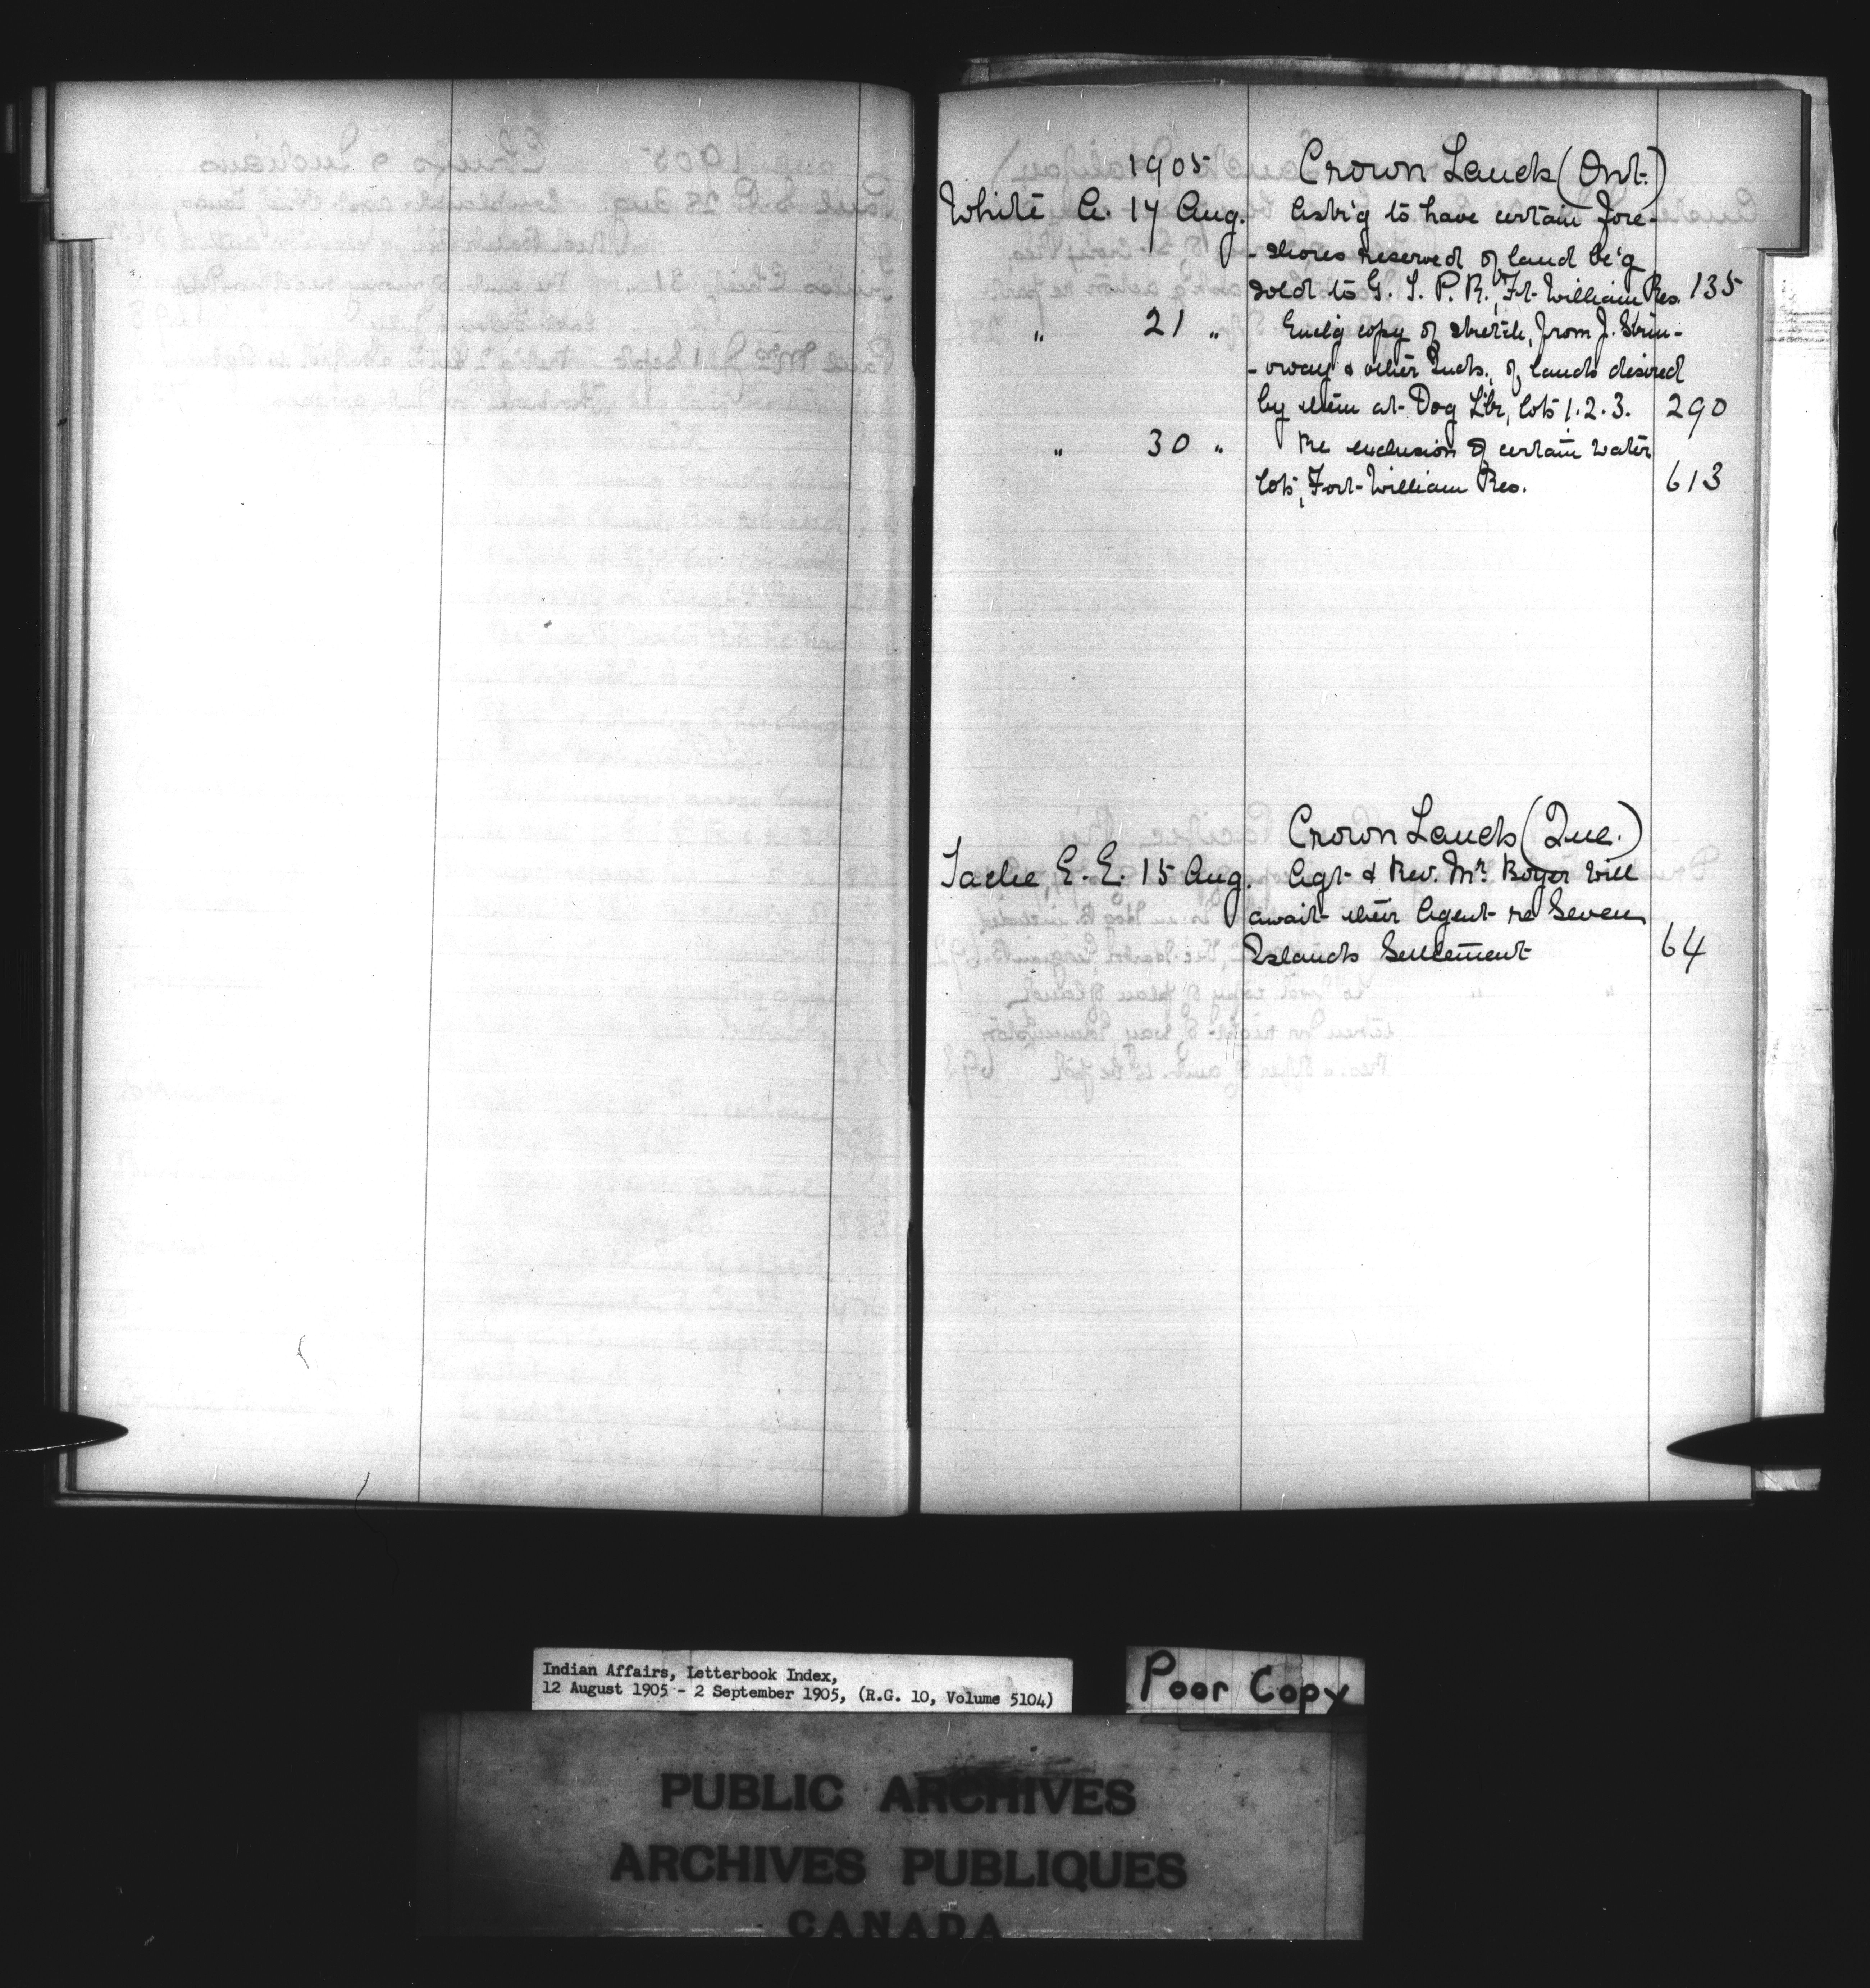 1905 Crown Lands (Ont.)
White A. 17 Aug. Ask'g to have certain fore-
-shores reserved of land be'g
sold to G. T. P. R., Ft. William Res. 135
" 21 " Encl'g copy of sketch, from J.
-oway & other Inds., of lands desired
by them at Dog Lke, lots 1.2.3. 290
" 30 " Re exclusion of certain water
lots, Fort William Res. 613
Crown Lands (Que.)
Tache E. E. 15 Aug. Agt & Rev. Mr. Boyer will
await their Agent re Seven
Islands Settlement 64
Indian Affairs, Letterbook Index,
12 August 1905 - 2 September 1905, (R.G. 10, Volume 5104)
Poor Copy
PUBLIC ARCHIVES
ARCHIVES PUBLIQUES
CANADA